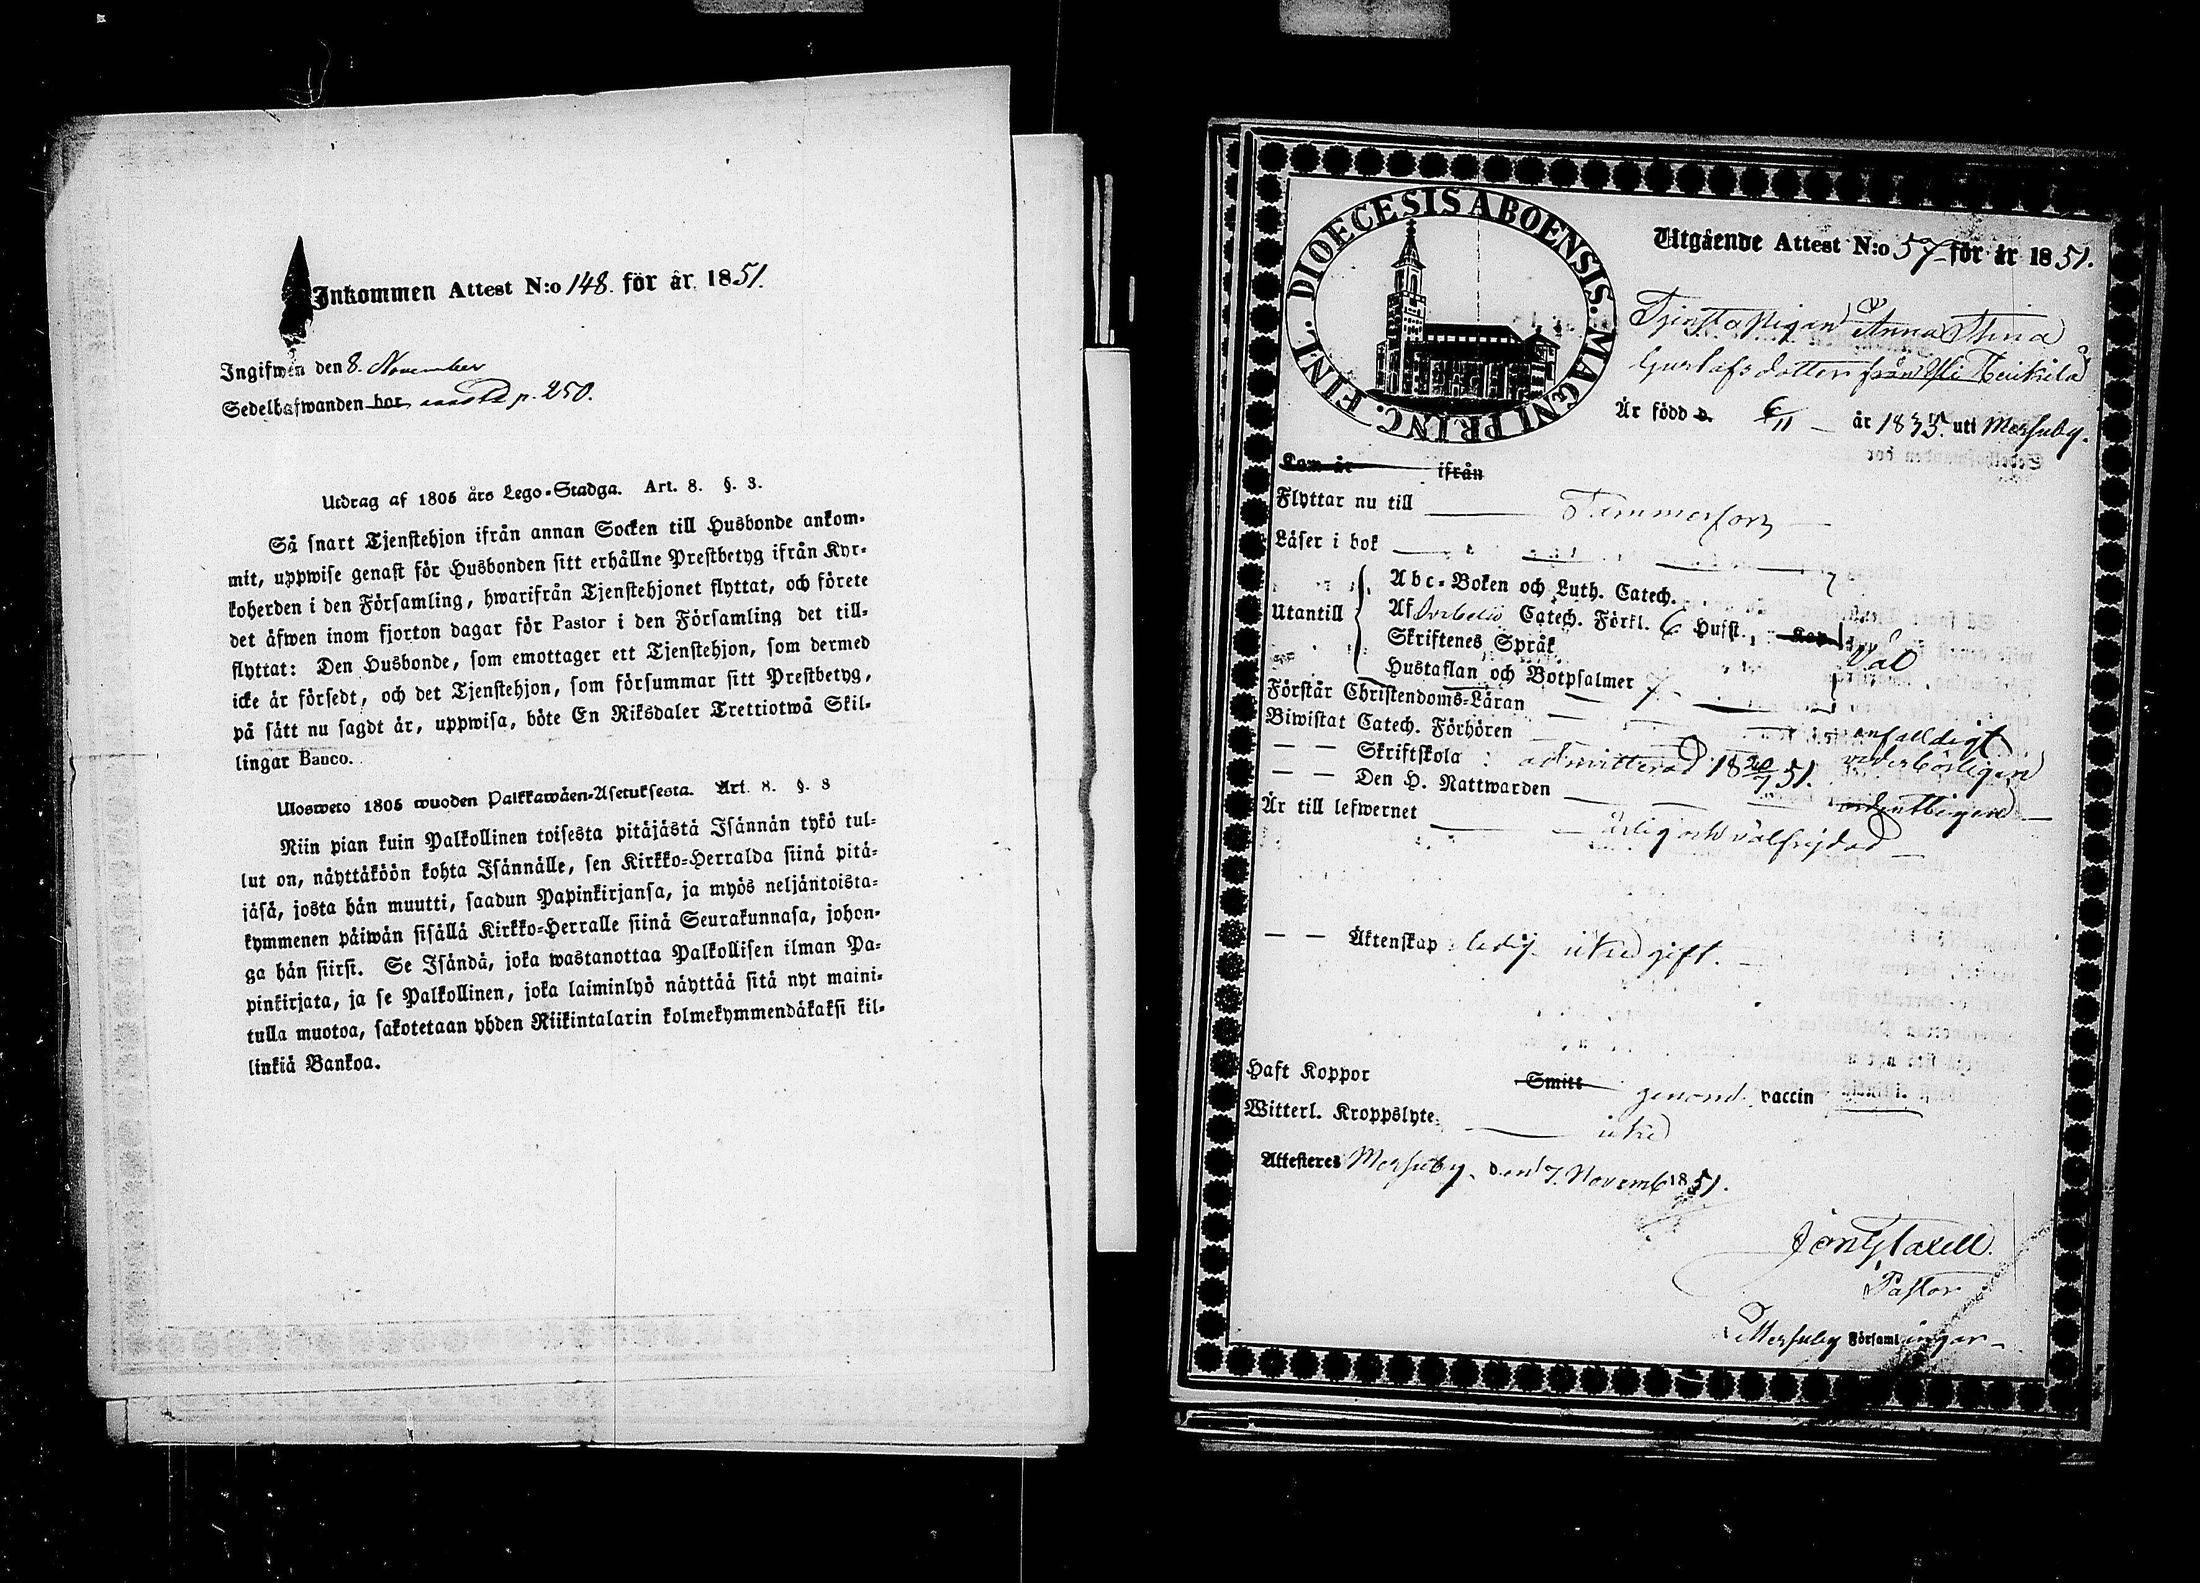 Inkommen Attest N:o 148. för år 1851.
Ingifwen den 8. November
Sedelhafwanden bor p. 250.
Utdrag af 1805 års Lego-Stadga. Art. 8. §. 3.
Så snart Tjenstehjon ifrån annan Socken till Husbonde ankom-
mit, uppwise genast för Husbonden sitt erhållne Prestbetyg ifrån Kyr-
koherden i den Församling, hwarifrån Tjenstehjonet flyttat, och förete
det äfwen inom fjorton dagar för Pastor i den Församling det till-
flyttat: Den Husbonde, som emottager ett Tjenstehjon, som dermed
icke är försedt, och det Tjenstehjon, som försummar sitt Prestbetyg,
på sätt nu sagdt är, uppwisa, böte En Riksdaler Trettiotwå Skil-
lingar Banco.
Ulosweto 1805 wuoden Palkkawäen-Asetuksesta. Art. 8. §. 3
Niin pian kuin Palkollinen toisesta pitäjästä Isännän tykö tul-
lut on, näyttäköön kohta Isännälle, sen Kirkko-Herralda siinä pitä-
jäsä, josta hän muutti, saadun Papinkirjansa, ja myös neljäntoista-
kymmenen päiwän sisällä Kirkko-Herralle siinä Seurakunnasa, johon-
ga hän siirsi. Se Isändä, joka wastanottaa Palkollisen ilman Pa-
pinkirjata, ja se Palkollinen, joka laiminlyö näyttää sitä nyt maini-
tulla muotoa, sakotetaan yhden Riikintalarin kolmekymmendäkaksi kil-
linkiä Bankoa.
DIOECESIS ABOENSIS. MAGNI PRINC. FINL.
Utgående Attest N:o 57 för år 1851.
Tjenstepigan Anna Stina
Gustafsdotter från Yli Heikkilä
Är född d. 6/11 år 1835. uti Merhuby.
Kom år ifrån
Flyttar nu till Tammerfors
Läser i bok
Abc-Boken och Luth. Catech.
Utantill
Af Svebelii Catech. Förkl. 6 Hufst., Kap
Skriftenes Språk
väl
Hustaflan och Botpsalmer 7
Förstår Christendoms-Läran enfaldigt
Biwistat Catech. Förhören vederbörligen
— — Skriftskola: admitterad 18 20/7 51.
— — Den H. Nattwarden ordentligen
Är till lefwernet ärlig och välfrejdad
— — Äktenskap: ledig ifrån gift.
Haft Koppor Smitt genom vaccin
Witterl. Kroppslyte. icke
Attesteres Merhuby den 7. Novemb 1851.
Pastor
i Merhuby Församlingar